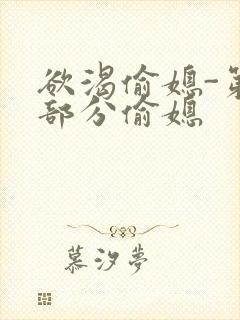 欲渴偷媳-第
部分偷媳
慕汐夢